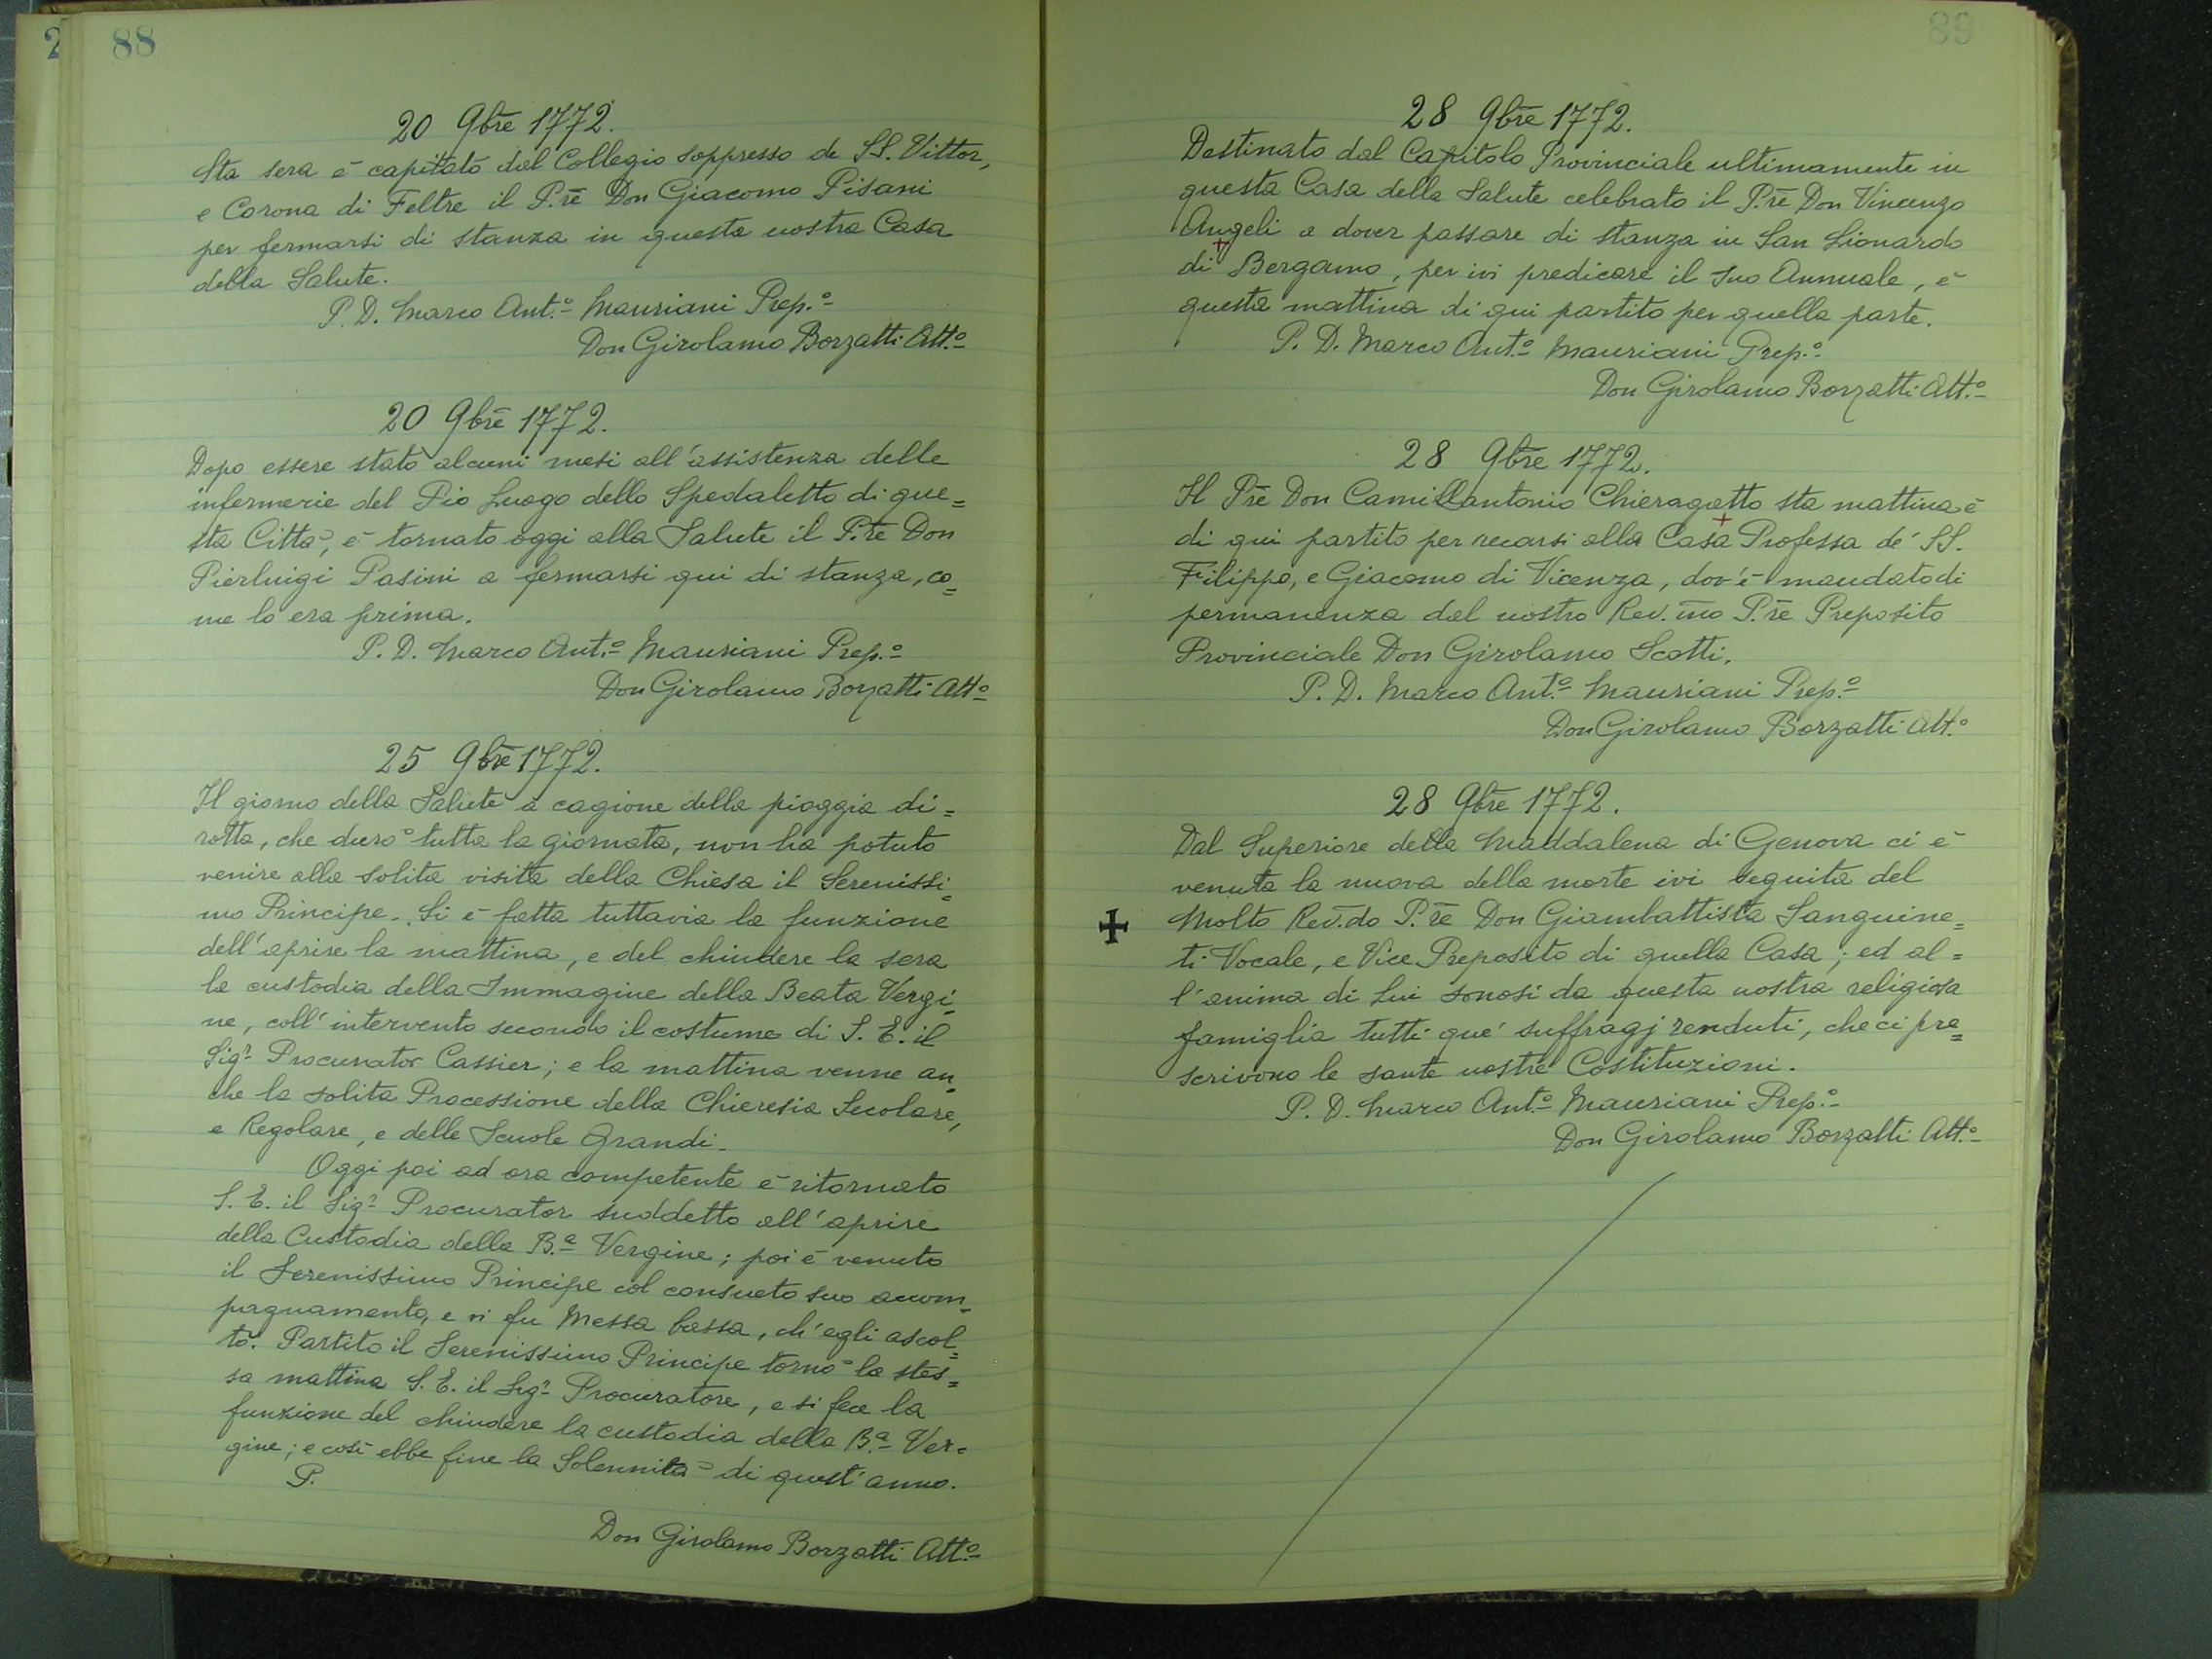 88
20 9bre 1772.
Sta sera è capitato dal Collegio soppresso de SS. Vittor,
e Corona di Feltre il P.re Don Giacomo Pisani
per fermarsi di stanza in questa nostra Casa
della Salute.
P. D. Marco Ant.o Mauriani Prep.o
Don Girolamo Borzatti Att.o
20 9bre 1772.
Dopo essere stato alcuni mesi all'assistenza delle
infermerie del Pio Luogo dello Spedaletto di que=
sta Città, è tornato oggi alla Salute il P.re Don
Pierluigi Pasini a fermarsi qui di stanza, co=
me lo era prima.
P. D. Marco Ant.o Mauriani Prep.o
Don Girolamo Borzatti Att.o
25 9bre 1772.
Il giorno della Salute a cagione della pioggia di=
rotta, che durò tutta la giornata, non ha potuto
venire alla solita visita della Chiesa il Serenissi=
mo Principe. Si è fatta tuttavia la funzione
dell'aprire la mattina, e del chiudere la sera
la custodia della Immagine della Beata Vergi=
ne, coll'intervento secondo il costume di S. E. il
Sig.r Procurator Cassier; e la mattina venne an=
che la solita Processione della Chieresia Secolare,
e Regolare, e delle Scuole Grandi.
Oggi poi ad ora competente è ritornato
S. E. il Sig.r Procurator suddetto all'aprire
della Custodia della B.a Vergine; poi è venuto
il Serenissimo Principe col consueto suo accom=
pagnamento, e vi fu Messa bassa, ch'egli ascol=
tò. Partito il Serenissimo Principe tornò la stes=
sa mattina S. E. il Sig.r Procuratore, e si fece la
funzione del chiudere la custodia della B.a Ver=
gine; e così ebbe fine la Solennità di quest'anno.
P.
Don Girolamo Borzatti Att.o
89
28 9bre 1772.
Destinato dal Capitolo Provinciale ultimamente in
questa Casa della Salute celebrato il P.re Don Vincenzo
Angeli a dover passare di stanza in San Lionardo
di Bergamo, per ivi predicare il suo Annuale, è
questa mattina di qui partito per quella parte.
P. D. Marco Ant.o Mauriani Prep.o
Don Girolamo Borzatti Att.o
28 9bre 1772.
Il Pre Don Camillantonio Chieragatto sta mattina è
di qui partito per recarsi alla Casa Professa de' SS.
Filippo, e Giacomo di Vicenza, dov'è mandato di
permanenza dal nostro Rev.mo P.re Preposito
Provinciale Don Girolamo Scotti.
P. D. Marco Ant.o Mauriani Prep.o
Don Girolamo Borzatti Att.o
28 9bre 1772.
Dal Superiore della Maddalena di Genova ci è
venuta la nuova della morte ivi seguita del
Molto Rev.do P.re Don Giambattista Sanguine=
ti Vocale, e Vice Preposito di quella Casa; ed al=
l'anima di Lui sonosi da questa nostra religiosa
famiglia tutti que' suffragj renduti, che ci pre=
scrivono le sante nostre Costituzioni.
P. D. Marco Ant.o Mauriani Prep.o
Don Girolamo Borzatti Att.o